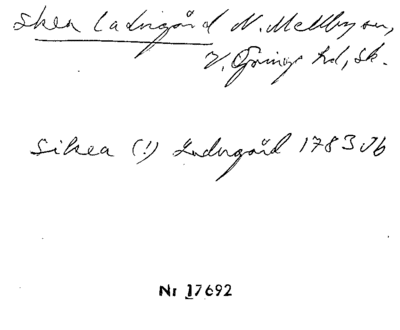 Skea Ladugård N. Mellby sn,
V. Göinge hd, Sk.
Sikea (!) Ladugård 1783 Jb
Nr 17692